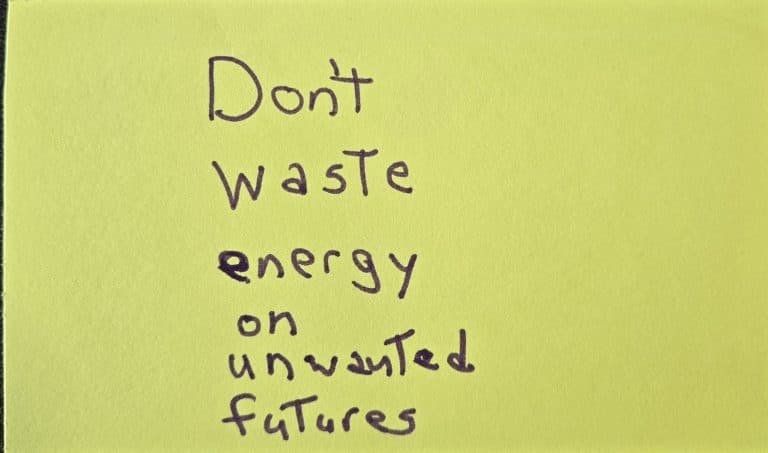 Don't
waste
energy
on
unwanted
futures